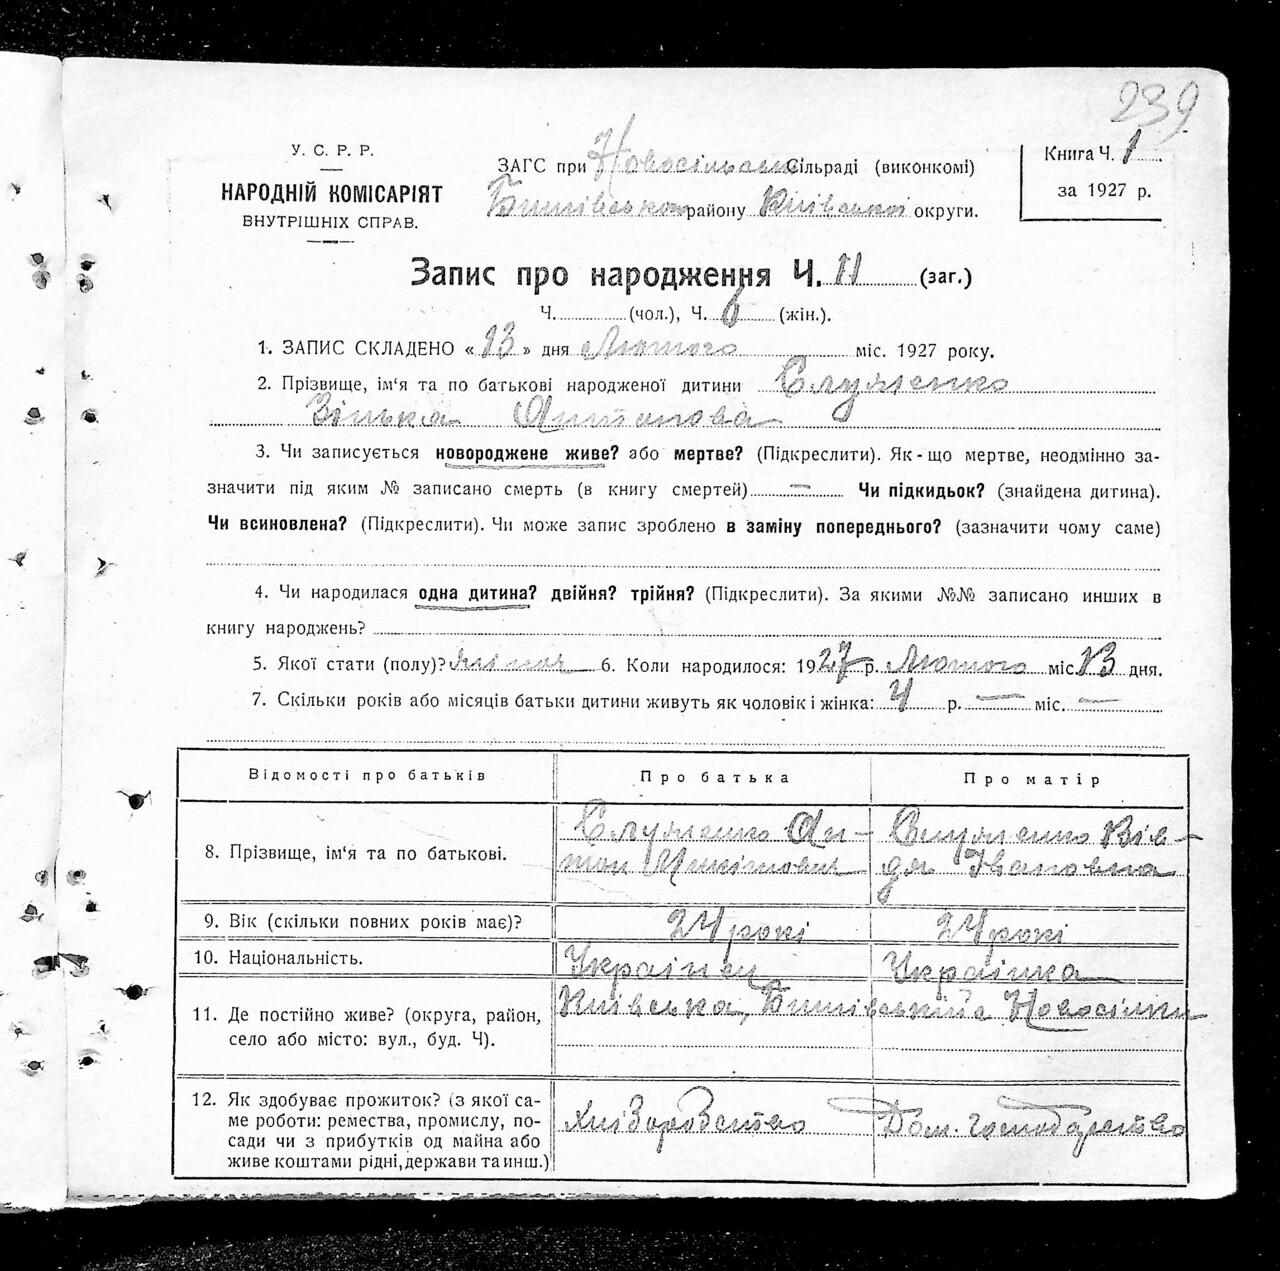 239
У. С. Р. Р.
НАРОДНІЙ КОМІСАРІЯТ
ВНУТРІШНІХ СПРАВ.
ЗАГС при Новосільській Сільраді (виконкомі)
району Київської округи.
Книга Ч. 1
за 1927 р.
Запис про народження Ч. 11 (заг.)
Ч. (чол.), Ч. 6 (жін.).
1. ЗАПИС СКЛАДЕНО « 13 » дня Лютого міс. 1927 року.
2. Прізвище, ім'я та по батькові народженої дитини
Зінька Антонова
3. Чи записується новороджене живе? або мертве? (Підкреслити). Як-що мертве, неодмінно за-
значити під яким № записано смерть (в книгу смертей) — Чи підкидьок? (знайдена дитина).
Чи всиновлена? (Підкреслити). Чи може запис зроблено в заміну попереднього? (зазначити чому саме)
4. Чи народилася одна дитина? двійня? трійня? (Підкреслити). За якими №№ записано инших в
книгу народжень?
5. Якої стати (полу)? жіноч 6. Коли народилося: 1927 р. Лютого міс. 13 дня.
7. Скільки років або місяців батьки дитини живуть як чоловік і жінка: 4 р. — міс. —
Відомості про батьків Про батька Про матір
8. Прізвище, ім'я та по батькові.
Ан-
тон Микітович
Ів-
Івановна
9. Вік (скільки повних років має)? 24 рокі 24 рокі
10. Національність. Українец Українка
11. Де постійно живе? (округа, район,
село або місто: вул., буд. Ч).
Київська, Новосілки
12. Як здобуває прожиток? (з якої са-
ме роботи: ремества, промислу, по-
сади чи з прибутків од майна або
живе коштами рідні, держави та инш.)
Хліборобство Дом. Господарство